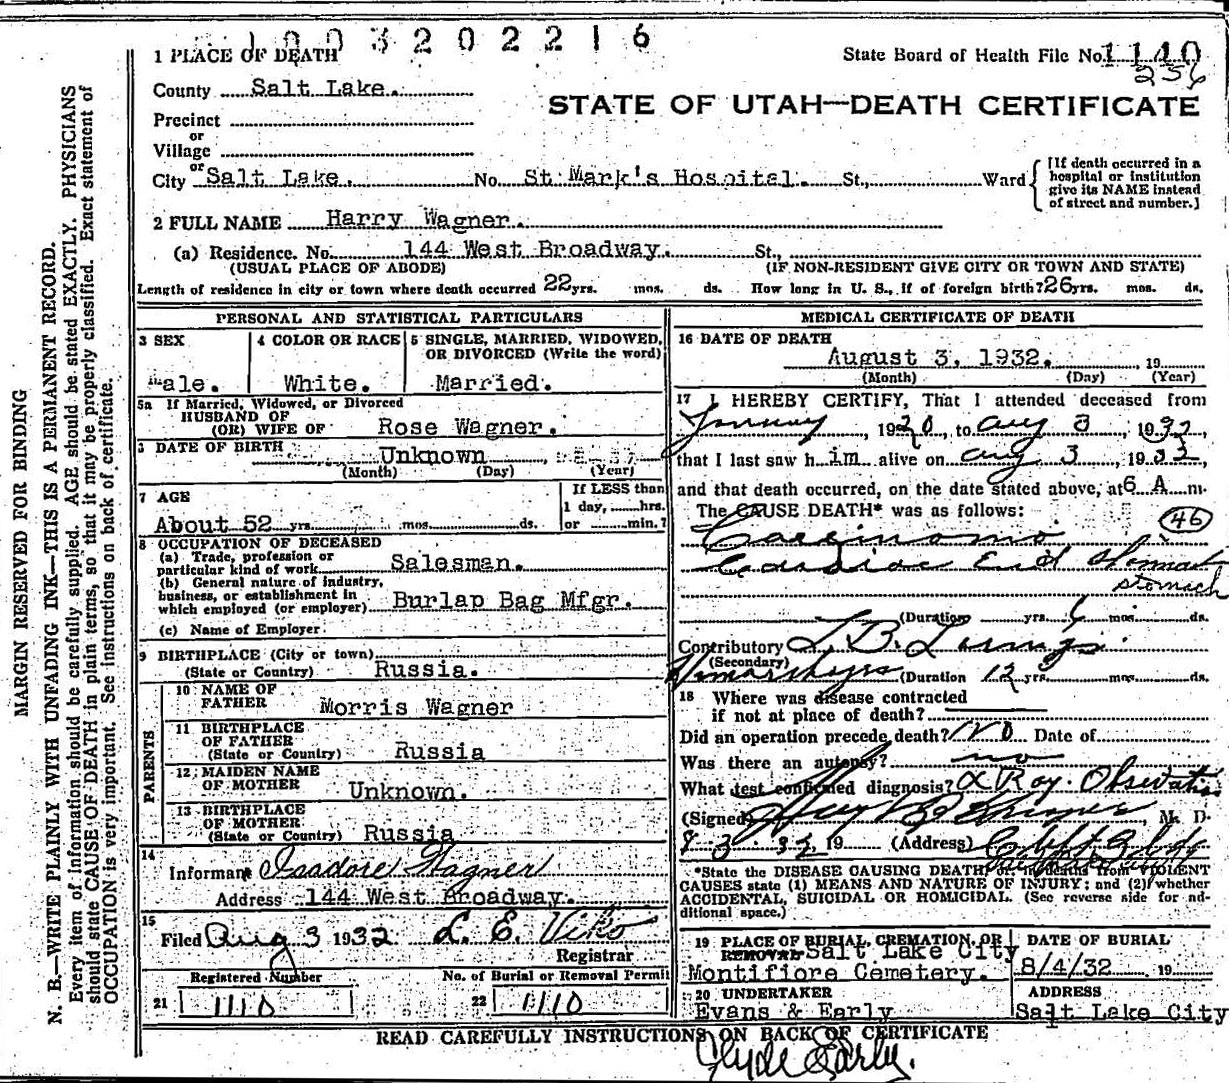 1003202216
State Board of Health File No. 1140
256
1 PLACE OF DEATH
County Salt Lake.
STATE OF UTAH—DEATH CERTIFICATE
Precinct
or
Village
or
City Salt Lake. No. St Mark's Hospital. St., Ward
[If death occurred in a
hospital or institution
give its NAME instead
of street and number.]
2 FULL NAME Harry Wagner.
(a) Residence. No. 144 West Broadway. St.,
(USUAL PLACE OF ABODE) (IF NON-RESIDENT GIVE CITY OR TOWN AND STATE)
Length of residence in city or town where death occurred 22 yrs. mos. ds. How long in U. S., if of foreign birth? 26 yrs. mos. ds.
PERSONAL AND STATISTICAL PARTICULARS
3 SEX
ale.
4 COLOR OR RACE
White.
5 SINGLE, MARRIED, WIDOWED,
OR DIVORCED (Write the word)
Married.
5a If Married, Widowed, or Divorced
HUSBAND OF
(OR) WIFE OF Rose Wagner.
6 DATE OF BIRTH Unknown
(Month) (Day) (Year)
7 AGE
About 52 yrs. mos. ds.
If LESS than
1 day, hrs.
or min.?
8 OCCUPATION OF DECEASED
(a) Trade, profession or
particular kind of work Salesman.
(b) General nature of industry,
business, or establishment in
which employed (or employer) Burlap Bag Mfgr.
(c) Name of Employer
9 BIRTHPLACE (City or town)
(State or Country) Russia.
PARENTS
10 NAME OF
FATHER Morris Wagner
11 BIRTHPLACE
OF FATHER
(State or Country) Russia
12 MAIDEN NAME
OF MOTHER Unknown.
13 BIRTHPLACE
OF MOTHER
(State or Country) Russia
14
Informant Isadore Wagner
Address 144 West Broadway.
15
Filed Aug 3 1932 L. E. Viko
Registrar
Registered Number No. of Burial or Removal Permit
21 1110 22 1110
MEDICAL CERTIFICATE OF DEATH
16 DATE OF DEATH
August 3, 1932. , 19
(Month) (Day) (Year)
17 I HEREBY CERTIFY, That I attended deceased from
, 1920, to Aug 3, 1932,
that I last saw him alive on Aug 3, 1932,
and that death occurred, on the date stated above, at 6 A m.
The CAUSE DEATH* was as follows:
46
Carcinoma
Cardiac End Stomach
stomach
(Duration yrs. 6 mos. ds.
Contributory T.B. Lungs
(Secondary)
(Duration 12 yrs. mos. ds.
18 Where was disease contracted
if not at place of death?
Did an operation precede death? No Date of
Was there an autopsy? no
What test confirmed diagnosis? X Ray. Observation
(Signed) , M. D.
8 3 32, 19 (Address)
*State the DISEASE CAUSING DEATH, or, in deaths from VIOLENT
CAUSES state (1) MEANS AND NATURE OF INJURY; and (2) whether
ACCIDENTAL, SUICIDAL OR HOMICIDAL. (See reverse side for ad-
ditional space.)
19 PLACE OF BURIAL, CREMATION, OR
REMOVAL Salt Lake City
Montifiore Cemetery.
DATE OF BURIAL
8/4/32 19
20 UNDERTAKER
Evans & Early
ADDRESS
Salt Lake City
READ CAREFULLY INSTRUCTIONS ON BACK OF CERTIFICATE
Clyde Early.
MARGIN RESERVED FOR BINDING
N. B.—WRITE PLAINLY WITH UNFADING INK—THIS IS A PERMANENT RECORD.
Every item of information should be carefully supplied. AGE should be stated EXACTLY. PHYSICIANS
should state CAUSE OF DEATH in plain terms, so that it may be properly classified. Exact statement of
OCCUPATION is very important. See instructions on back of certificate.